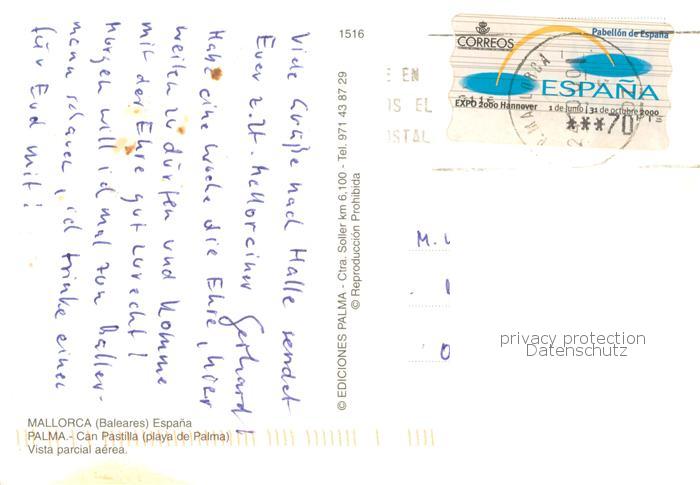 Viele Grüße nach Halle sendet
Euer z.Zt. Malloreiner Gerhard!
Habe eine Woche die Ehre, hier
weilen zu dürfen und komme
mit der Ehre gut zurecht!
Morgen will ich mal zum Baller-
mann schauen, ich trinke einen
für Euch mit!
MALLORCA (Baleares) España
PALMA.- Can Pastilla (playa de Palma)
Vista parcial aérea.
1516
© EDICIONES PALMA - Ctra. Soller km 6,100 - Tel. 971 43 87 29
© Reproducción Prohibida
E EN
OS EL
OSTAL
CORREOS
Pabellón de España
ESPAÑA
EXPO 2000 Hannover
1 de junio | 31 de octubre 2000
***70
M.
privacy protection
Datenschutz